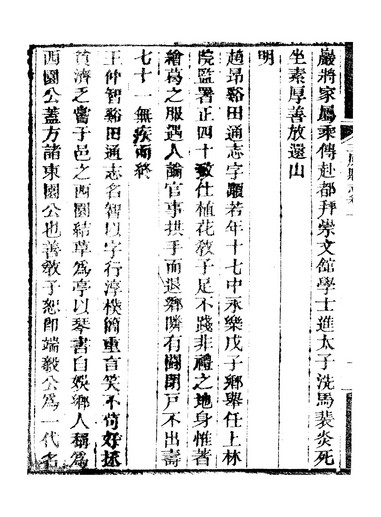 嚴將家屬乘傳赴都拜崇文館學士進太子洗馬裴炎死
生素厚善放還山
明
趙昂谿田通志字顒若年十七中永樂戊子鄉舉任上林
院監署正四十致仕植花敎子足不踐非禮之地身惟著
繪葛之服遇人論官事拱手而退鄉隣有鬭閉戶不出壽
七十一無疾而終
王仲智谿田通志名智以字行淳樸簡重言笑不苟好拯
貧濟乏嘗于邑之西園結草爲亭以琴書自娛鄉人稱爲
西園公蓋方諸東園公也善敎子恕卽端毅公爲一代名